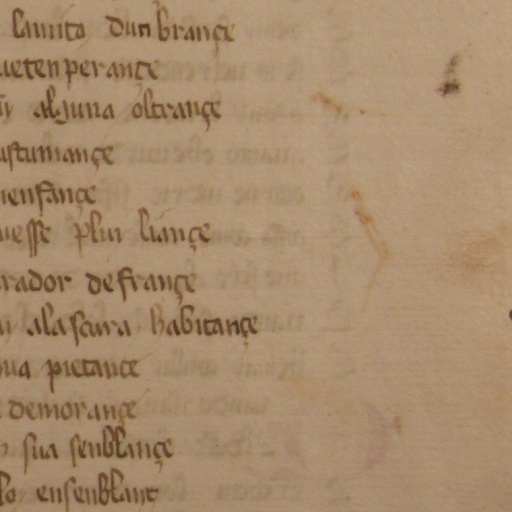 dun brançe
uetenperançe
alguna oltrançe
ustumançe
ienfançe
uesse plui liançe
rador defrançe
alascura habitançe
ua pietance
demorançe
sua senblançe
lo ensenblant